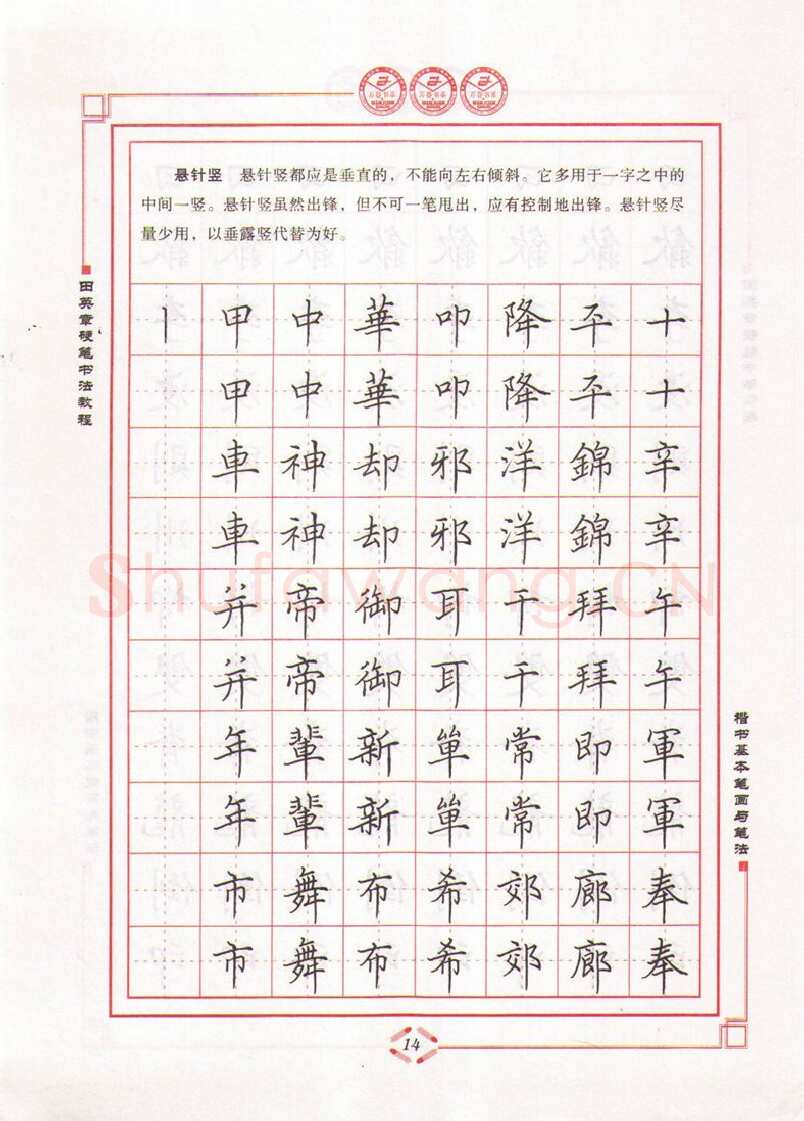 悬针竖 悬针竖都应是垂直的，不能向左右倾斜。它多用于一字之中的
中间一竖。悬针竖虽然出锋，但不可一笔甩出，应有控制地出锋。悬针竖尽
量少用，以垂露竖代替为好。
田英章硬笔书法教程
丨甲中華叩降平十
甲中華叩降平十
車神却邪洋錦辛
車神却邪洋錦辛
并帝御耳干拜午
并帝御耳干拜午
年輩新單常即軍
年輩新單常即軍
市舞布希郊廊奉
市舞布希郊廊奉
Shufawang.CN
楷书基本笔画与笔法
14